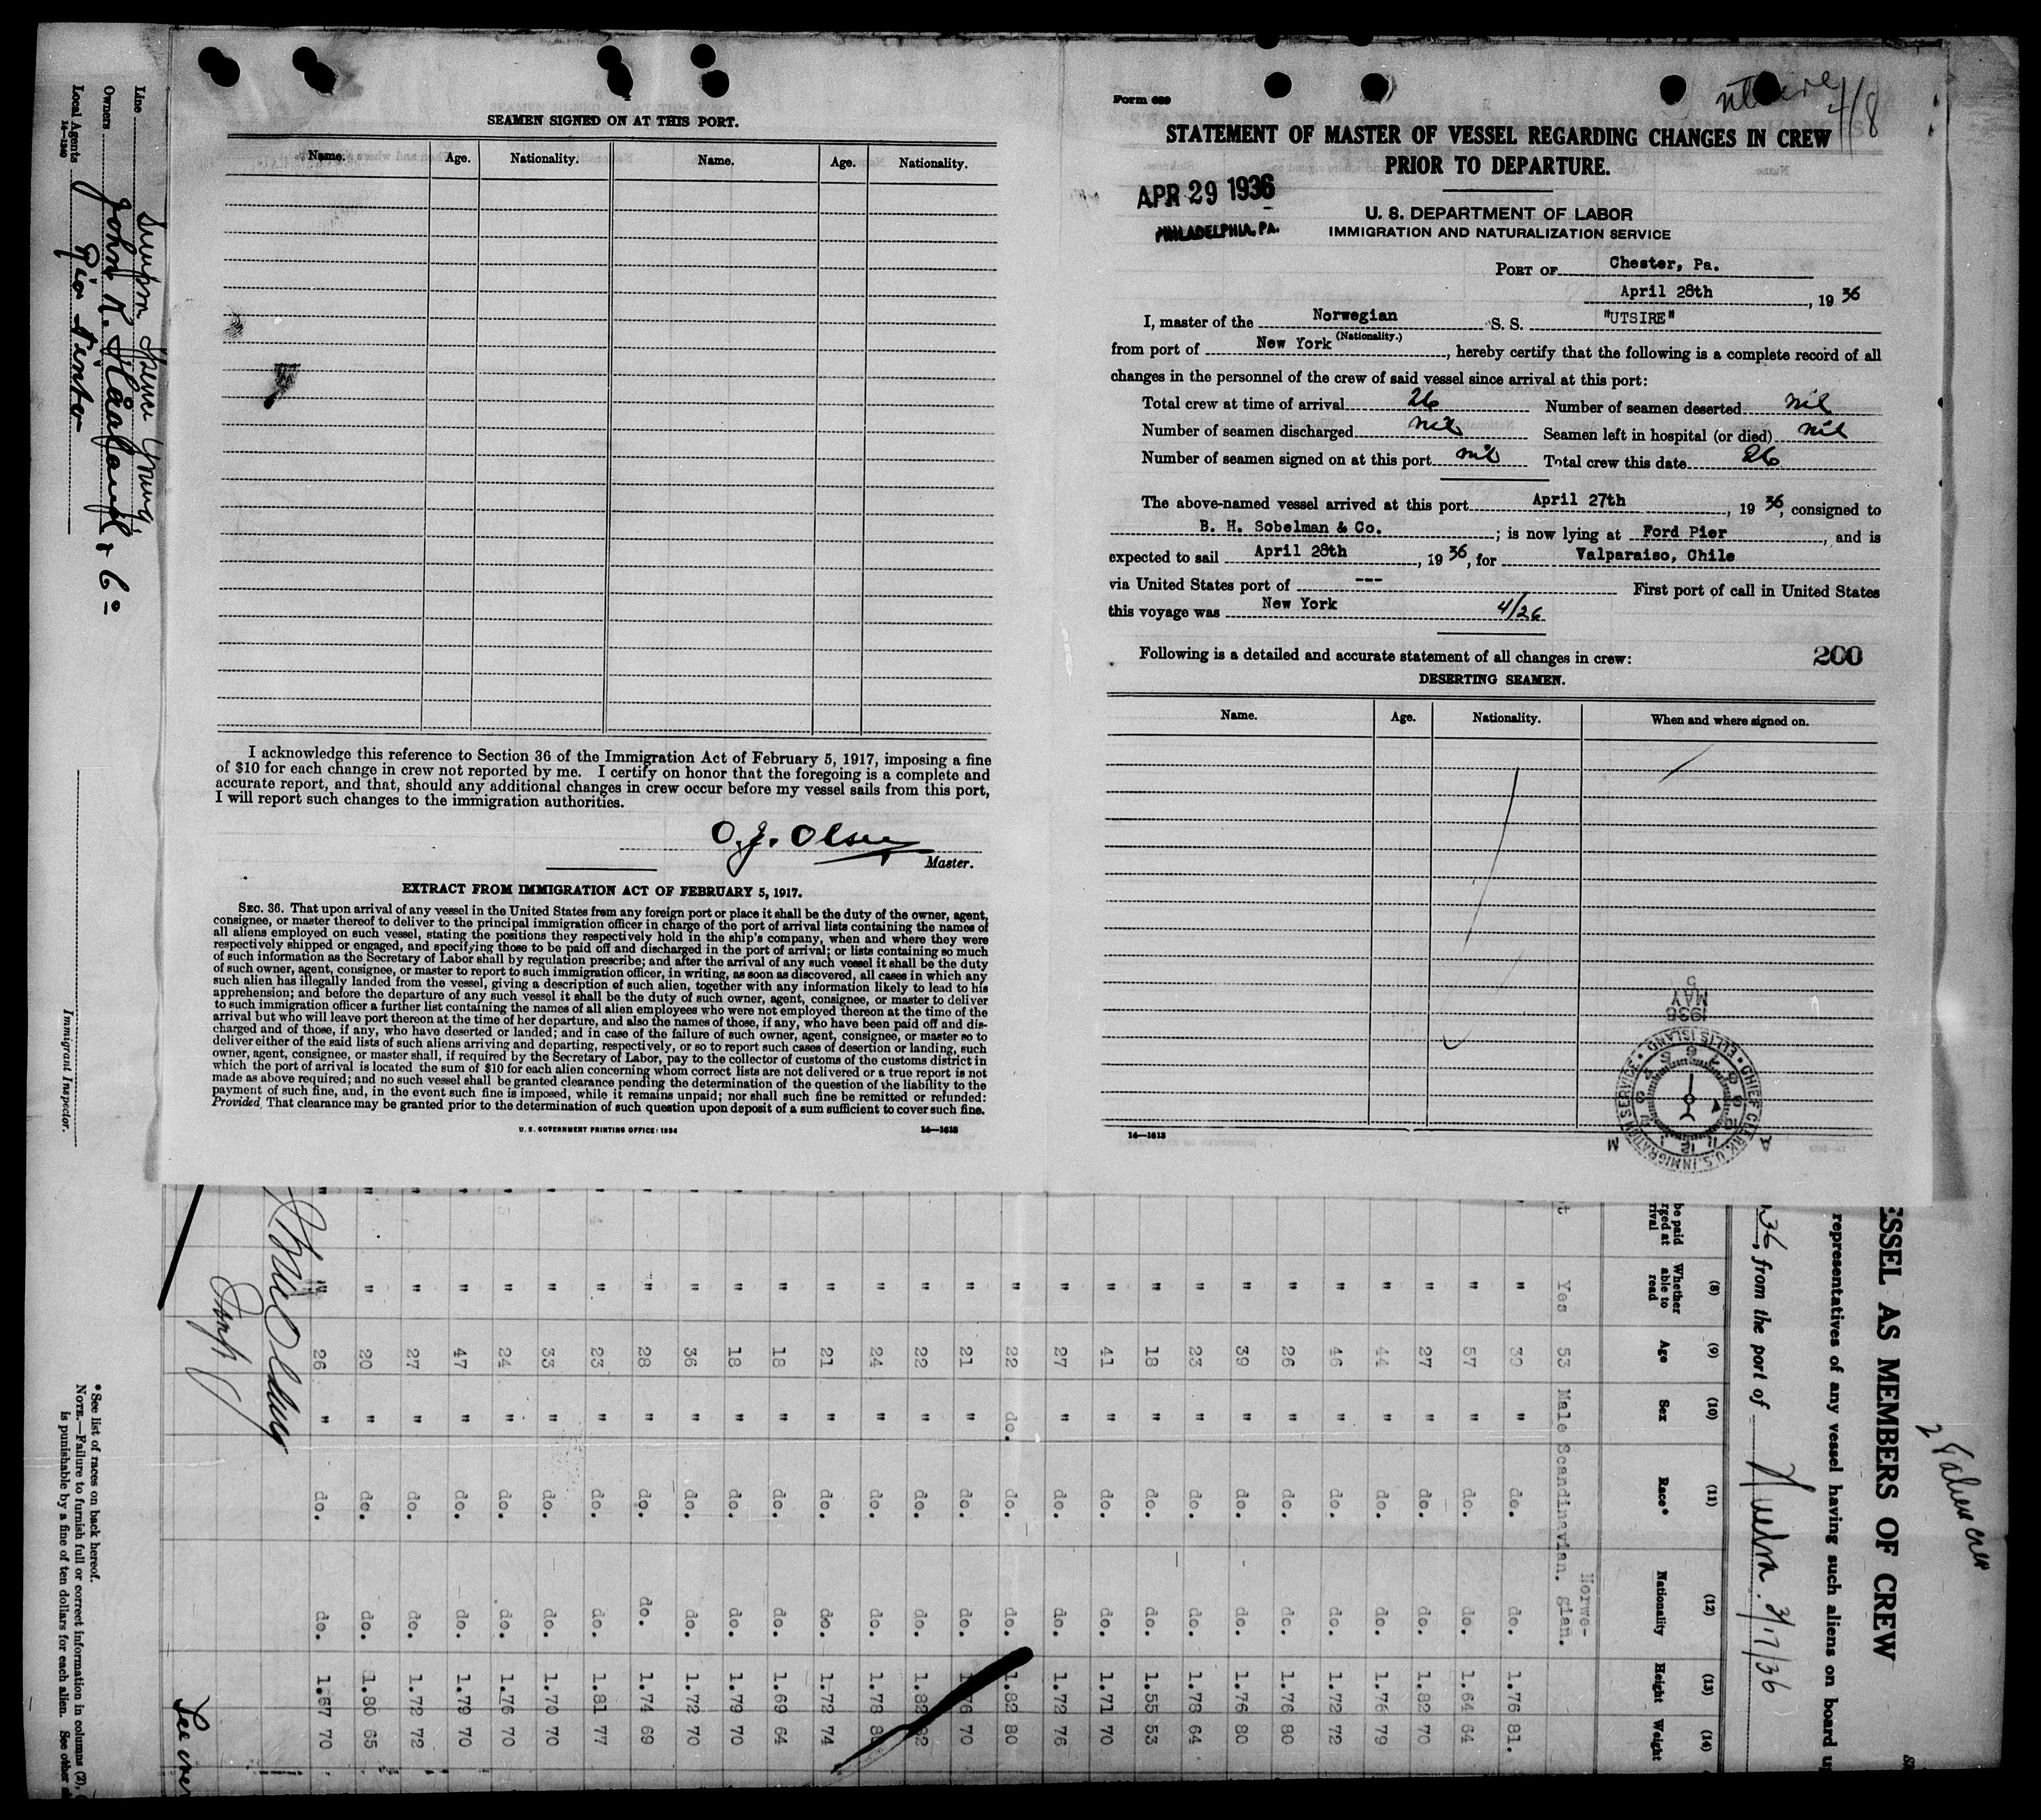 SEAMEN SIGNED ON AT THIS PORT.
Name. Age. Nationality. Name. Age. Nationality.
I acknowledge this reference to Section 36 of the Immigration Act of February 5, 1917, imposing a fine
of $10 for each change in crew not reported by me. I certify on honor that the foregoing is a complete and
accurate report, and that, should any additional changes in crew occur before my vessel sails from this port,
I will report such changes to the immigration authorities.
O. J. Olsen
Master.
EXTRACT FROM IMMIGRATION ACT OF FEBRUARY 5, 1917.
SEC. 36. That upon arrival of any vessel in the United States from any foreign port or place it shall be the duty of the owner, agent,
consignee, or master thereof to deliver to the principal immigration officer in charge of the port of arrival lists containing the names of
all aliens employed on such vessel, stating the positions they respectively hold in the ship's company, when and where they were
respectively shipped or engaged, and specifying those to be paid off and discharged in the port of arrival; or lists containing so much
of such information as the Secretary of Labor shall by regulation prescribe; and after the arrival of any such vessel it shall be the duty
of such owner, agent, consignee, or master to report to such immigration officer, in writing, as soon as discovered, all cases in which any
such alien has illegally landed from the vessel, giving a description of such alien, together with any information likely to lead to his
apprehension; and before the departure of any such vessel it shall be the duty of such owner, agent, consignee, or master to deliver
to such immigration officer a further list containing the names of all alien employees who were not employed thereon at the time of the
arrival but who will leave port thereon at the time of her departure, and also the names of those, if any, who have been paid off and dis-
charged and of those, if any, who have deserted or landed; and in case of the failure of such owner, agent, consignee, or master so to
deliver either of the said lists of such aliens arriving and departing, respectively, or so to report such cases of desertion or landing, such
owner, agent, consignee, or master shall, if required by the Secretary of Labor, pay to the collector of customs of the customs district in
which the port of arrival is located the sum of $10 for each alien concerning whom correct lists are not delivered or a true report is not
made as above required; and no such vessel shall be granted clearance pending the determination of the question of the liability to the
payment of such fine, and, in the event such fine is imposed, while it remains unpaid; nor shall such fine be remitted or refunded:
Provided That clearance may be granted prior to the determination of such question upon deposit of a sum sufficient to cover such fine.
U. S. GOVERNMENT PRINTING OFFICE: 1934 14—1613
Form 689
4/8
STATEMENT OF MASTER OF VESSEL REGARDING CHANGES IN CREW
PRIOR TO DEPARTURE.
APR 29 1936
PHILADELPHIA, PA.
U. S. DEPARTMENT OF LABOR
IMMIGRATION AND NATURALIZATION SERVICE
PORT OF Chester, Pa.
April 28th, 19 36
I, master of the Norwegian S. S. "UTSIRE"
(Nationality.)
from port of New York, hereby certify that the following is a complete record of all
changes in the personnel of the crew of said vessel since arrival at this port:
Total crew at time of arrival 26 Number of seamen deserted nil
Number of seamen discharged nil Seamen left in hospital (or died) nil
Number of seamen signed on at this port nil Total crew this date 26
The above-named vessel arrived at this port April 27th, 19 36, consigned to
B. H. Sobelman & Co.; is now lying at Ford Pier, and is
expected to sail April 28th, 19 36, for Valparaiso, Chile
via United States port of --- First port of call in United States
this voyage was New York 4/26
Following is a detailed and accurate statement of all changes in crew: 200
DESERTING SEAMEN.
Name. Age. Nationality. When and where signed on.
1936
MAY
5
CHIEF CLERK, U.S. IMMIGRATION SERVICE • ELLIS ISLAND •
A M
14—1613
Line
Owners John K. Haaland & Co
Local Agents
14—1240
Immigrant Inspector.
ESSEL AS MEMBERS OF CREW
representatives of any vessel having such aliens on board u
36, from the port of Huelva. 3/17/36
be paid
rged at
rival
(8) Whether able to read
(9) Age
(10) Sex
(11) Race*
(12) Nationality
(13) Height
(14) Weight
t Yes 53 Male Scandinavian. Norwe-gian.
" 39 " do. do. 1.76 81.
" 57 " do. do. 1.64 64
" 27 " do. do. 1.82 70
" 44 " do. do. 1.76 79
" 46 " do. do. 1.72 72
" 26 " do. do. 1.76 80
" 39 " do. do. 1.76 80
" 23 " do. do. 1.78 64
" 18 " do. do. 1.55 53
" 41 " do. do. 1.71 70
" 27 " do. do. 1.72 76
" 22 do. do. do. 1.82 80
" 21 " do. do. 76 70
" 22 " do. do. 1.82
" 24 " do. do. 1.78
" 21 " do. do. 1.72 74
" 18 " do. do. 1.69 64
" 18 " do. do. 1.79 70
" 36 " do. do. 1.72 70
" 28 " do. do. 1.74 69
" 23 " do. do. 1.81 77
" 33 " do. do. 1.70 70
" 24 " do. do. 1.76 70
" 47 " do. do. 1.79 70
" 27 " do. do. 1.72 72
" 20 " do. do. 1.80 65
" 26 " do. do. 1.67 70
* See list of races on back hereof.
NOTE.—Failure to furnish full or correct information in columns (2),
is punishable by a fine of ten dollars for each alien. See other s